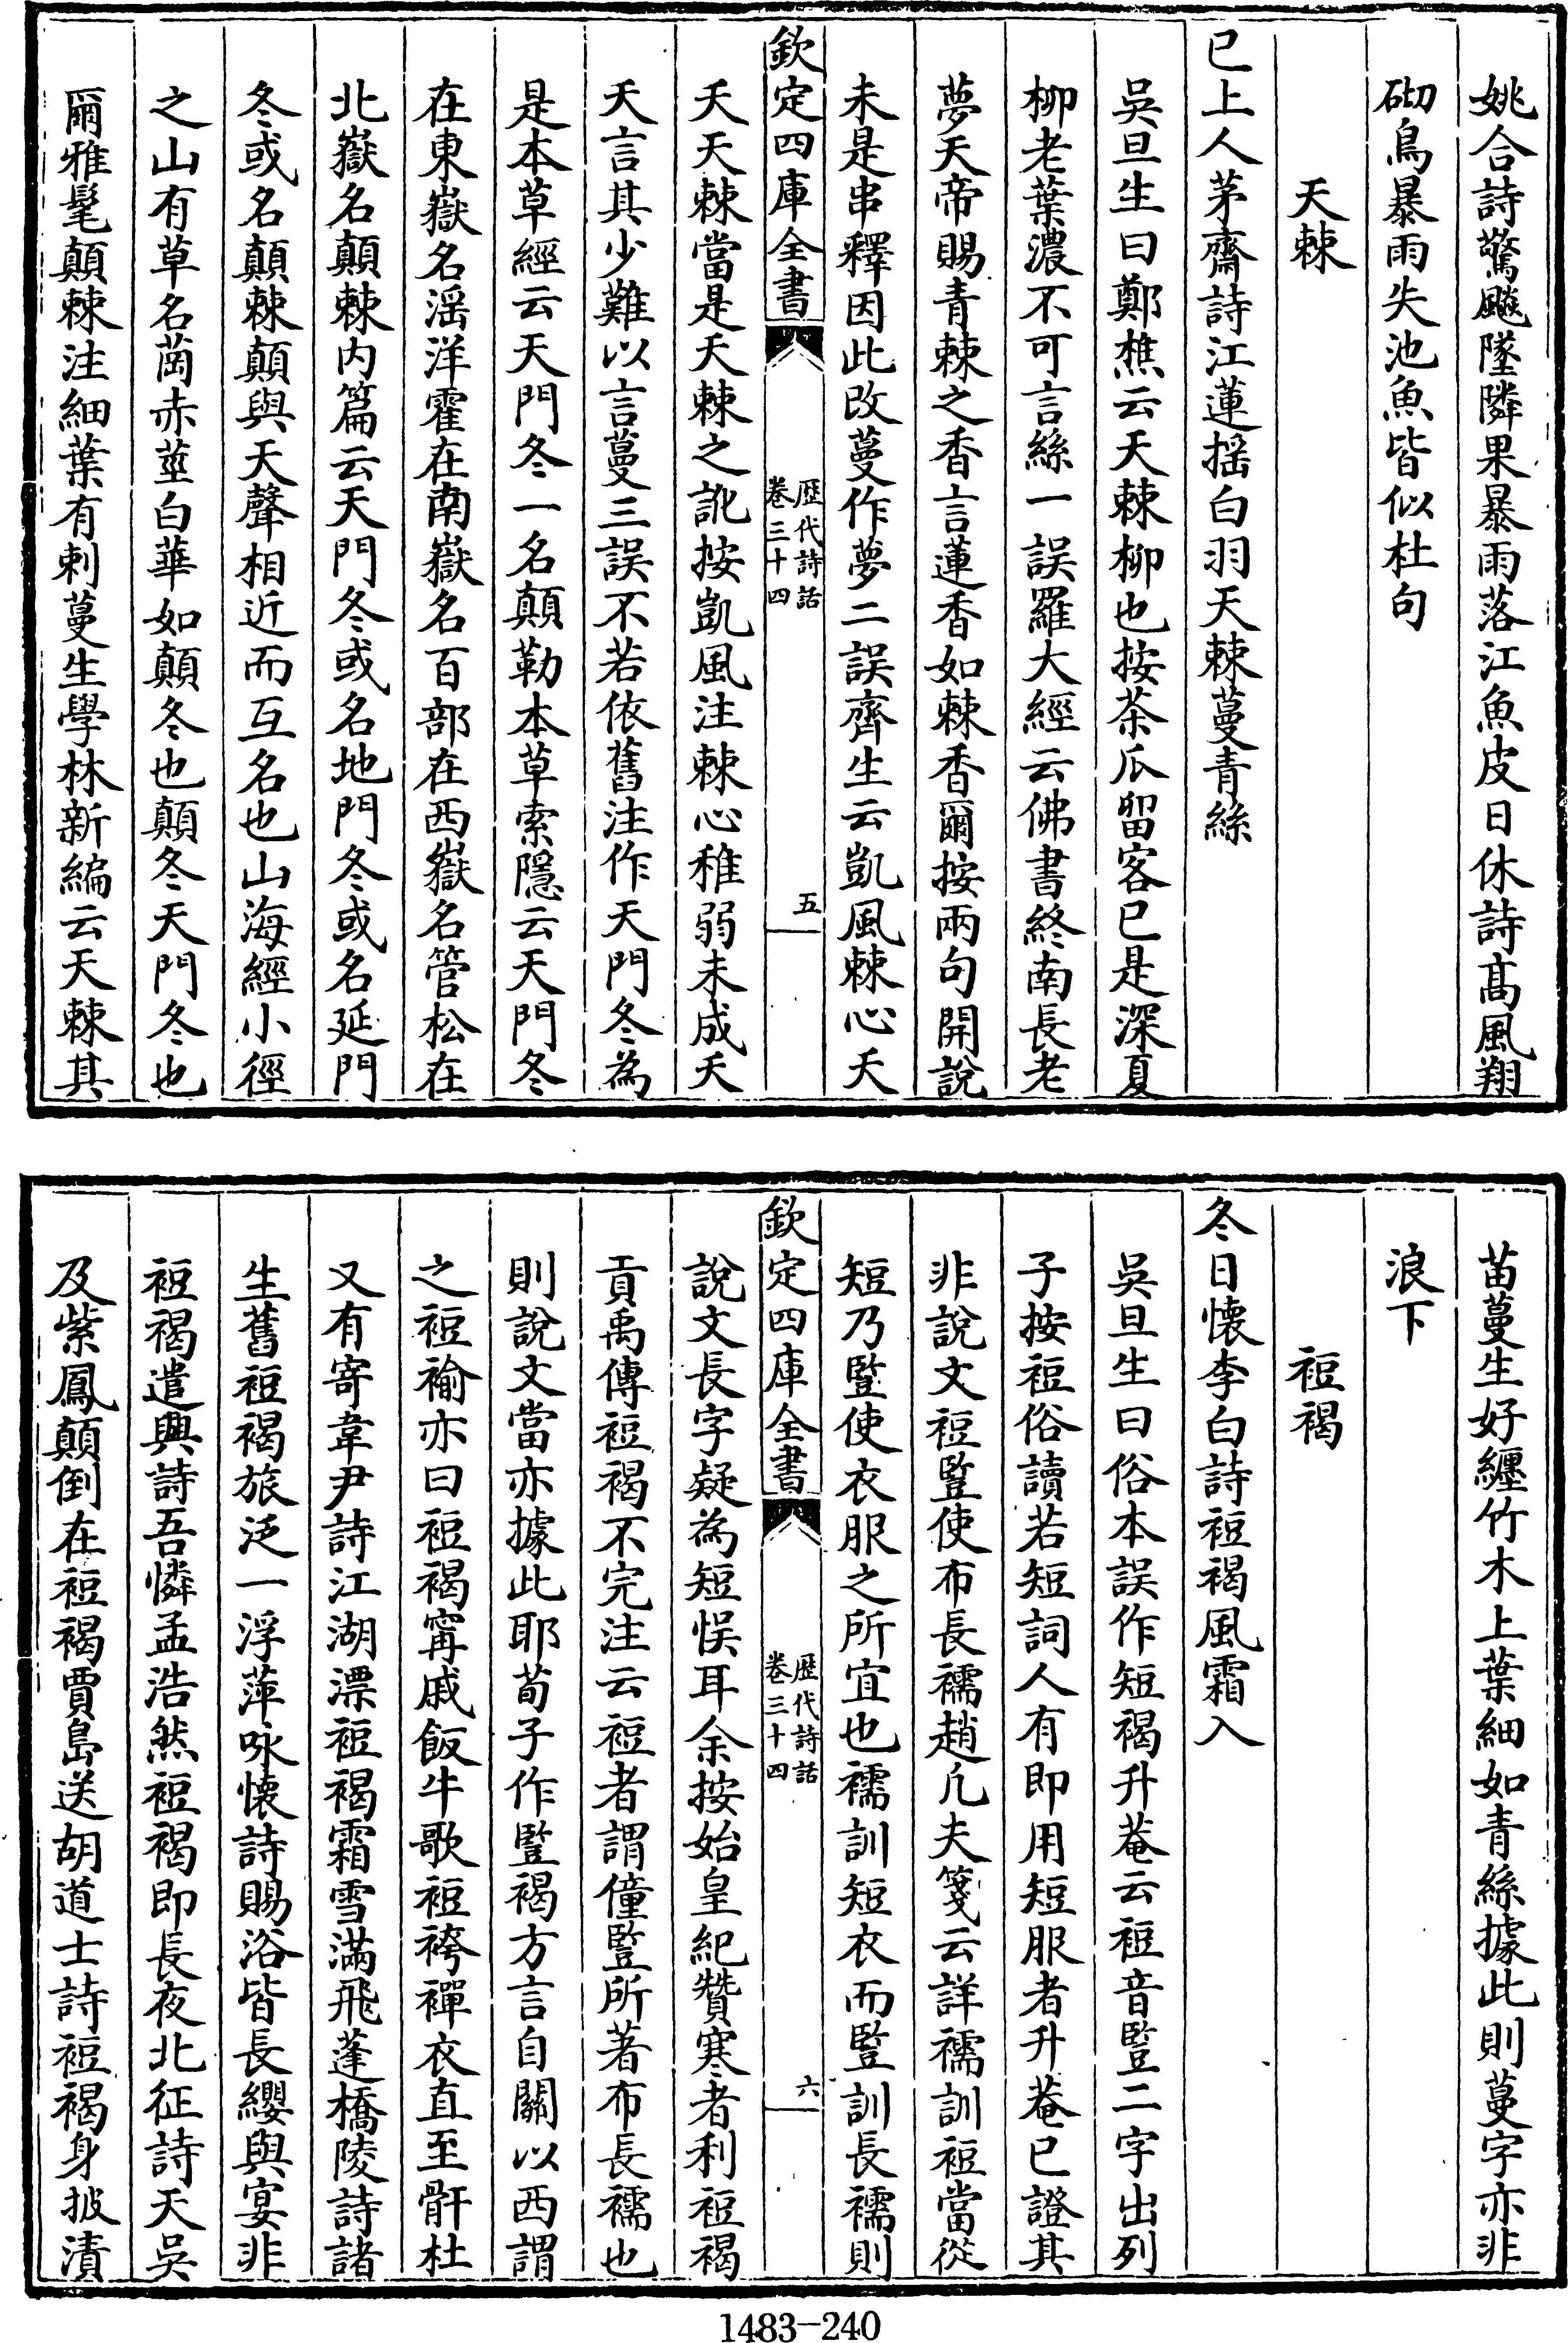 姚合詩驚飈墜隣果暴雨落江魚皮日休詩髙風翔
砌鳥暴雨失池魚皆似杜句
天棘
已上人茅齋詩江蓮揺白羽天棘蔓青絲
吳旦生曰鄭樵云天棘柳也按茶瓜留客已是深夏
柳老葉濃不可言絲一誤羅大經云佛書終南長老
夢天帝賜青棘之香言蓮香如棘香爾按兩句開說
未是串釋因此改蔓作夢二誤齊生云凱風棘心夭
欽定四庫全書
歴代詩話
卷三十四
五
夭天棘當是夭棘之訛按凱風注棘心稚弱未成夭
夭言其少難以言蔓三誤不若依舊注作天門冬為
是本草經云天門冬一名顛勒本草索隱云天門冬
在東嶽名滛洋霍在南嶽名百部在西嶽名管松在
北嶽名顛棘内篇云天門冬或名地門冬或名延門
冬或名顛棘顛與天聲相近而互名也山海經小徑
之山有草名𦳋赤莖白華如顛冬也顛冬天門冬也
爾雅髦顛棘注細葉有刺蔓生學林新編云天棘其
苗蔓生好纒竹木上葉細如青絲據此則蔓字亦非
浪下
裋褐
冬日懷李白詩裋褐風霜入
吳旦生曰俗本誤作短褐升菴云裋音豎二字出列
子按裋俗讀若短詞人有即用短服者升菴已證其
非說文裋豎使布長襦趙凡夫箋云詳襦訓裋當從
短乃豎使衣服之所宜也襦訓短衣而豎訓長襦則
欽定四庫全書
歴代詩話
卷三十四
六
說文長字疑為短悮耳余按始皇紀贊寒者利裋褐
貢禹傳裋褐不完注云裋者謂僮豎所著布長襦也
則說文當亦據此耶荀子作豎褐方言自關以西謂
之裋褕亦曰裋褐甯戚飯牛歌裋袴襌衣直至骭杜
又有寄韋尹詩江湖漂裋褐霜雪滿飛蓬橋陵詩諸
生舊裋褐旅泛一浮萍咏懷詩賜浴皆長纓與宴非
裋褐遣興詩吾憐孟浩然裋褐即長夜北征詩天吳
及紫鳳顛倒在裋褐賈島送胡道士詩裋褐身披漬
1483-240